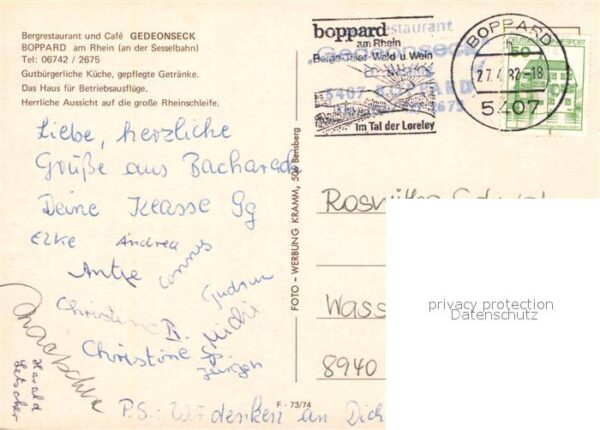 Bergrestaurant und Café GEDEONSECK
BOPPARD am Rhein (an der Sesselbahn)
Tel: 06742 / 2675
Gutbürgerliche Küche, gepflegte Getränke.
Das Haus für Betriebsausflüge.
Herrliche Aussicht auf die große Rheinschleife.
Liebe, herzliche
Grüße aus Bacharach
Deine Klasse 9g
Elke Andrea
Antje Connys
Gudrun
Christine R.
Michi
Christine Sp.
Jürgen
Harald
P.S.: Wir denken an Dich
FOTO - WERBUNG KRAMM, 506 Bensberg
F - 73/74
boppard
am Rhein
Im Tal der Loreley
restaurant
Gedeonseck
5407 BOPPARD
2675
BOPPARD
27.4.82-18
5407
DEUTSCHE BUNDESPOST
50
Wass
8940
privacy protection
Datenschutz